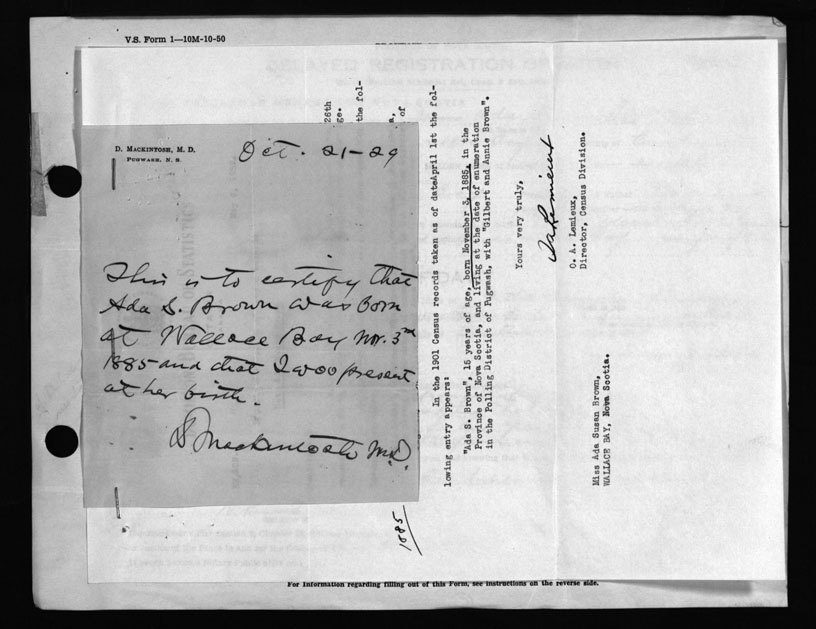 V.S. Form 1—10M-10-50
D. MACKINTOSH, M. D.
PUGWASH, N. S.
Oct. 21-29
This is to certify that
Ada S. Brown was born
at Wallace Bay Nov. 3rd
1885 and that I was present
at her birth.
D Mackintosh M.D.
26th
ge.
the fol-
a,
of
In the 1901 Census records taken as of dateApril 1st the fol-
lowing entry appears:
"Ada S. Brown", 15 years of age, born November 3, 1885, in the
Province of Nova Scotia, and living at the date of enumeration
in the Polling District of Pugwash, with "Gilbert and Annie Brown".
Yours very truly,
C. A. Lemieux,
Director, Census Division.
Miss Ada Susan Brown,
WALLACE BAY, Nova Scotia.
1885
For Information regarding filling out of this Form, see instructions on the reverse side.